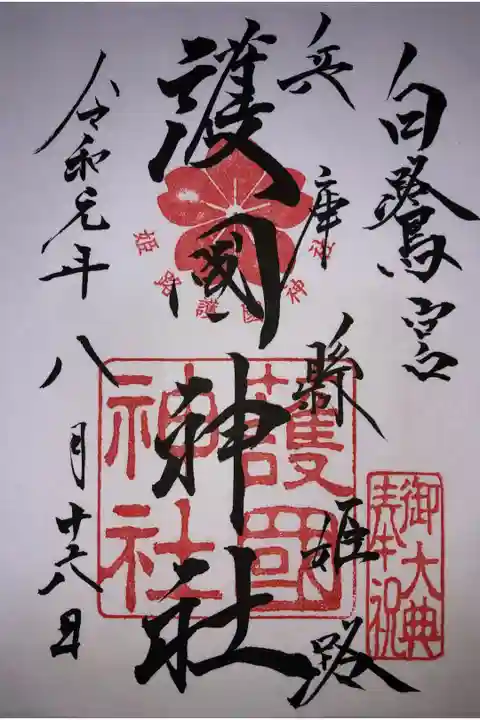 白鷺宮
兵庫縣姫路
護國神社
令和元年八月十六日
姫路護國神社
護國
神社
御大典
奉祝